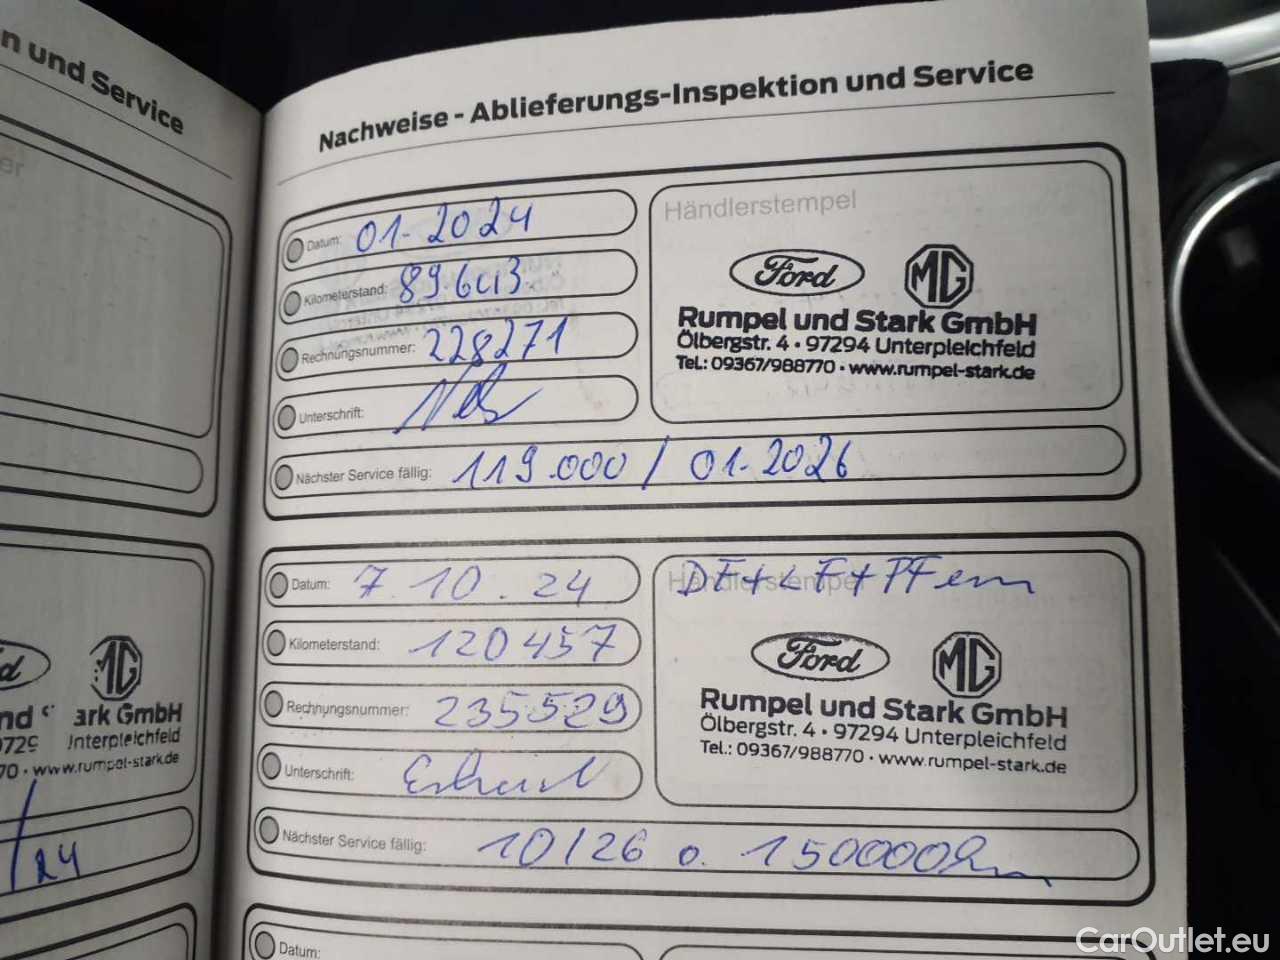 n und Service
er
d
MG
nd ark GmbH
9729 Interpleichfeld
70 · www.rumpel-stark.de
/24
Nachweise - Ablieferungs-Inspektion und Service
Datum: 01-2024
Kilometerstand: 89.613
Rechnungsnummer: 228271
Unterschrift:
Nächster Service fällig: 119.000 / 01-2026
Händlerstempel
Ford MG
Rumpel und Stark GmbH
Ölbergstr. 4 · 97294 Unterpleichfeld
Tel.: 09367/988770 · www.rumpel-stark.de
Datum: 7.10.24
Kilometerstand: 120457
Rechnungsnummer: 235529
Unterschrift:
Nächster Service fällig: 10/26 o. 150000km
Händlerstempel
Ford MG
Rumpel und Stark GmbH
Ölbergstr. 4 · 97294 Unterpleichfeld
Tel.: 09367/988770 · www.rumpel-stark.de
Datum:
CarOutlet.eu